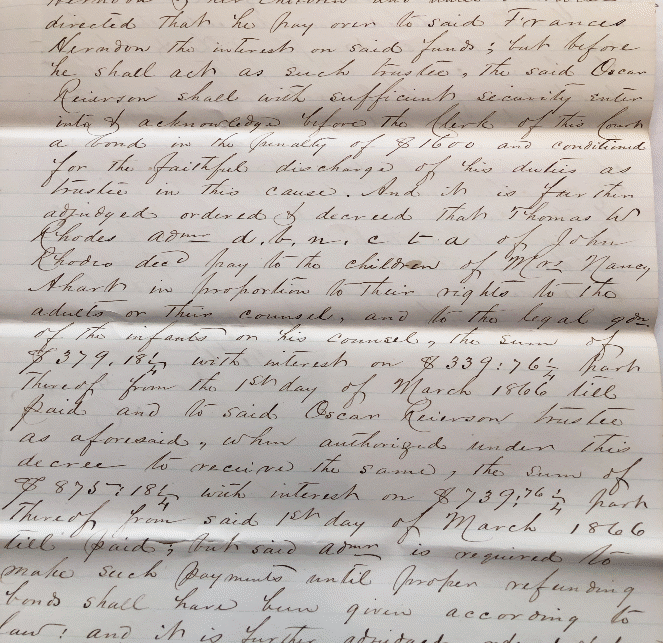 Herndon & her children and
directed that he pay over to said Frances
Herndon the interest on said funds; but before
he shall act as such trustee, the said Oscar
Reierson shall with sufficient security enter
into & acknowledge before the Clerk of this Court
a bond in the penalty of $1600 and conditioned
for the faithful discharge of his duties as
trustee in this cause. And it is further
adjudged ordered & decreed that Thomas W
Rhodes admr d. b. n. c t a of John
Rhodes decd pay to the children of Mrs Nancy
Ahart in proportion to their rights to the
adults or their counsel, and to the legal gdn.
of the infants or his counsel, the sum of
$379.18 1/4 with interest on $339:76 1/4 part
thereof from the 1st day of March 1866 till
paid and to said Oscar Reierson trustee
as aforesaid, when authorized under this
decree to receive the same, the sum of
$875:18 1/4 with interest on $739,76 1/4 part
thereof from said 1st day of March 1866
till paid; but said admr is required to
make such payments until proper refunding
bonds shall have been given according to
law: and it is further adjudged